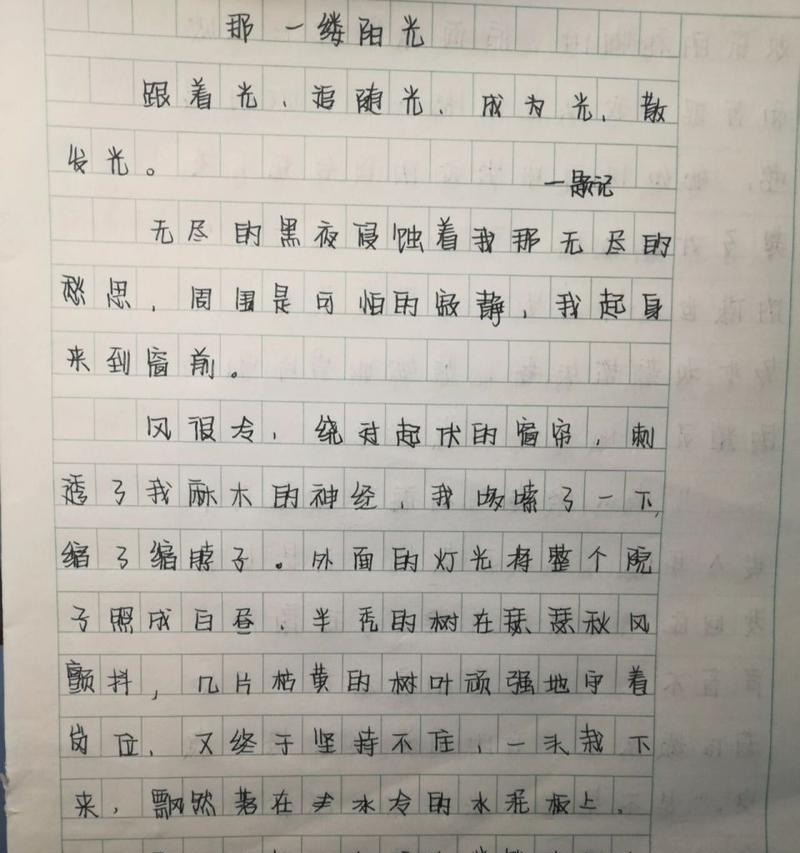 那一缕阳光
跟着光、追随光、成为光、散
发光。
—题记
无尽的黑夜侵蚀着我那无尽的
愁思，周围是可怕的寂静，我起身
来到窗前。
风很冷，绕过起伏的窗帘，刺
透了我麻木的神经，我哆嗦了一下，
缩了缩脖子。外面的灯光将整个院
子照成白昼，半秃的树在瑟瑟秋风
颤抖，几片枯黄的树叶顽强地守着
岗位，又终于坚持不住，一头栽下
来，飘然落在冰冷的水泥板上，